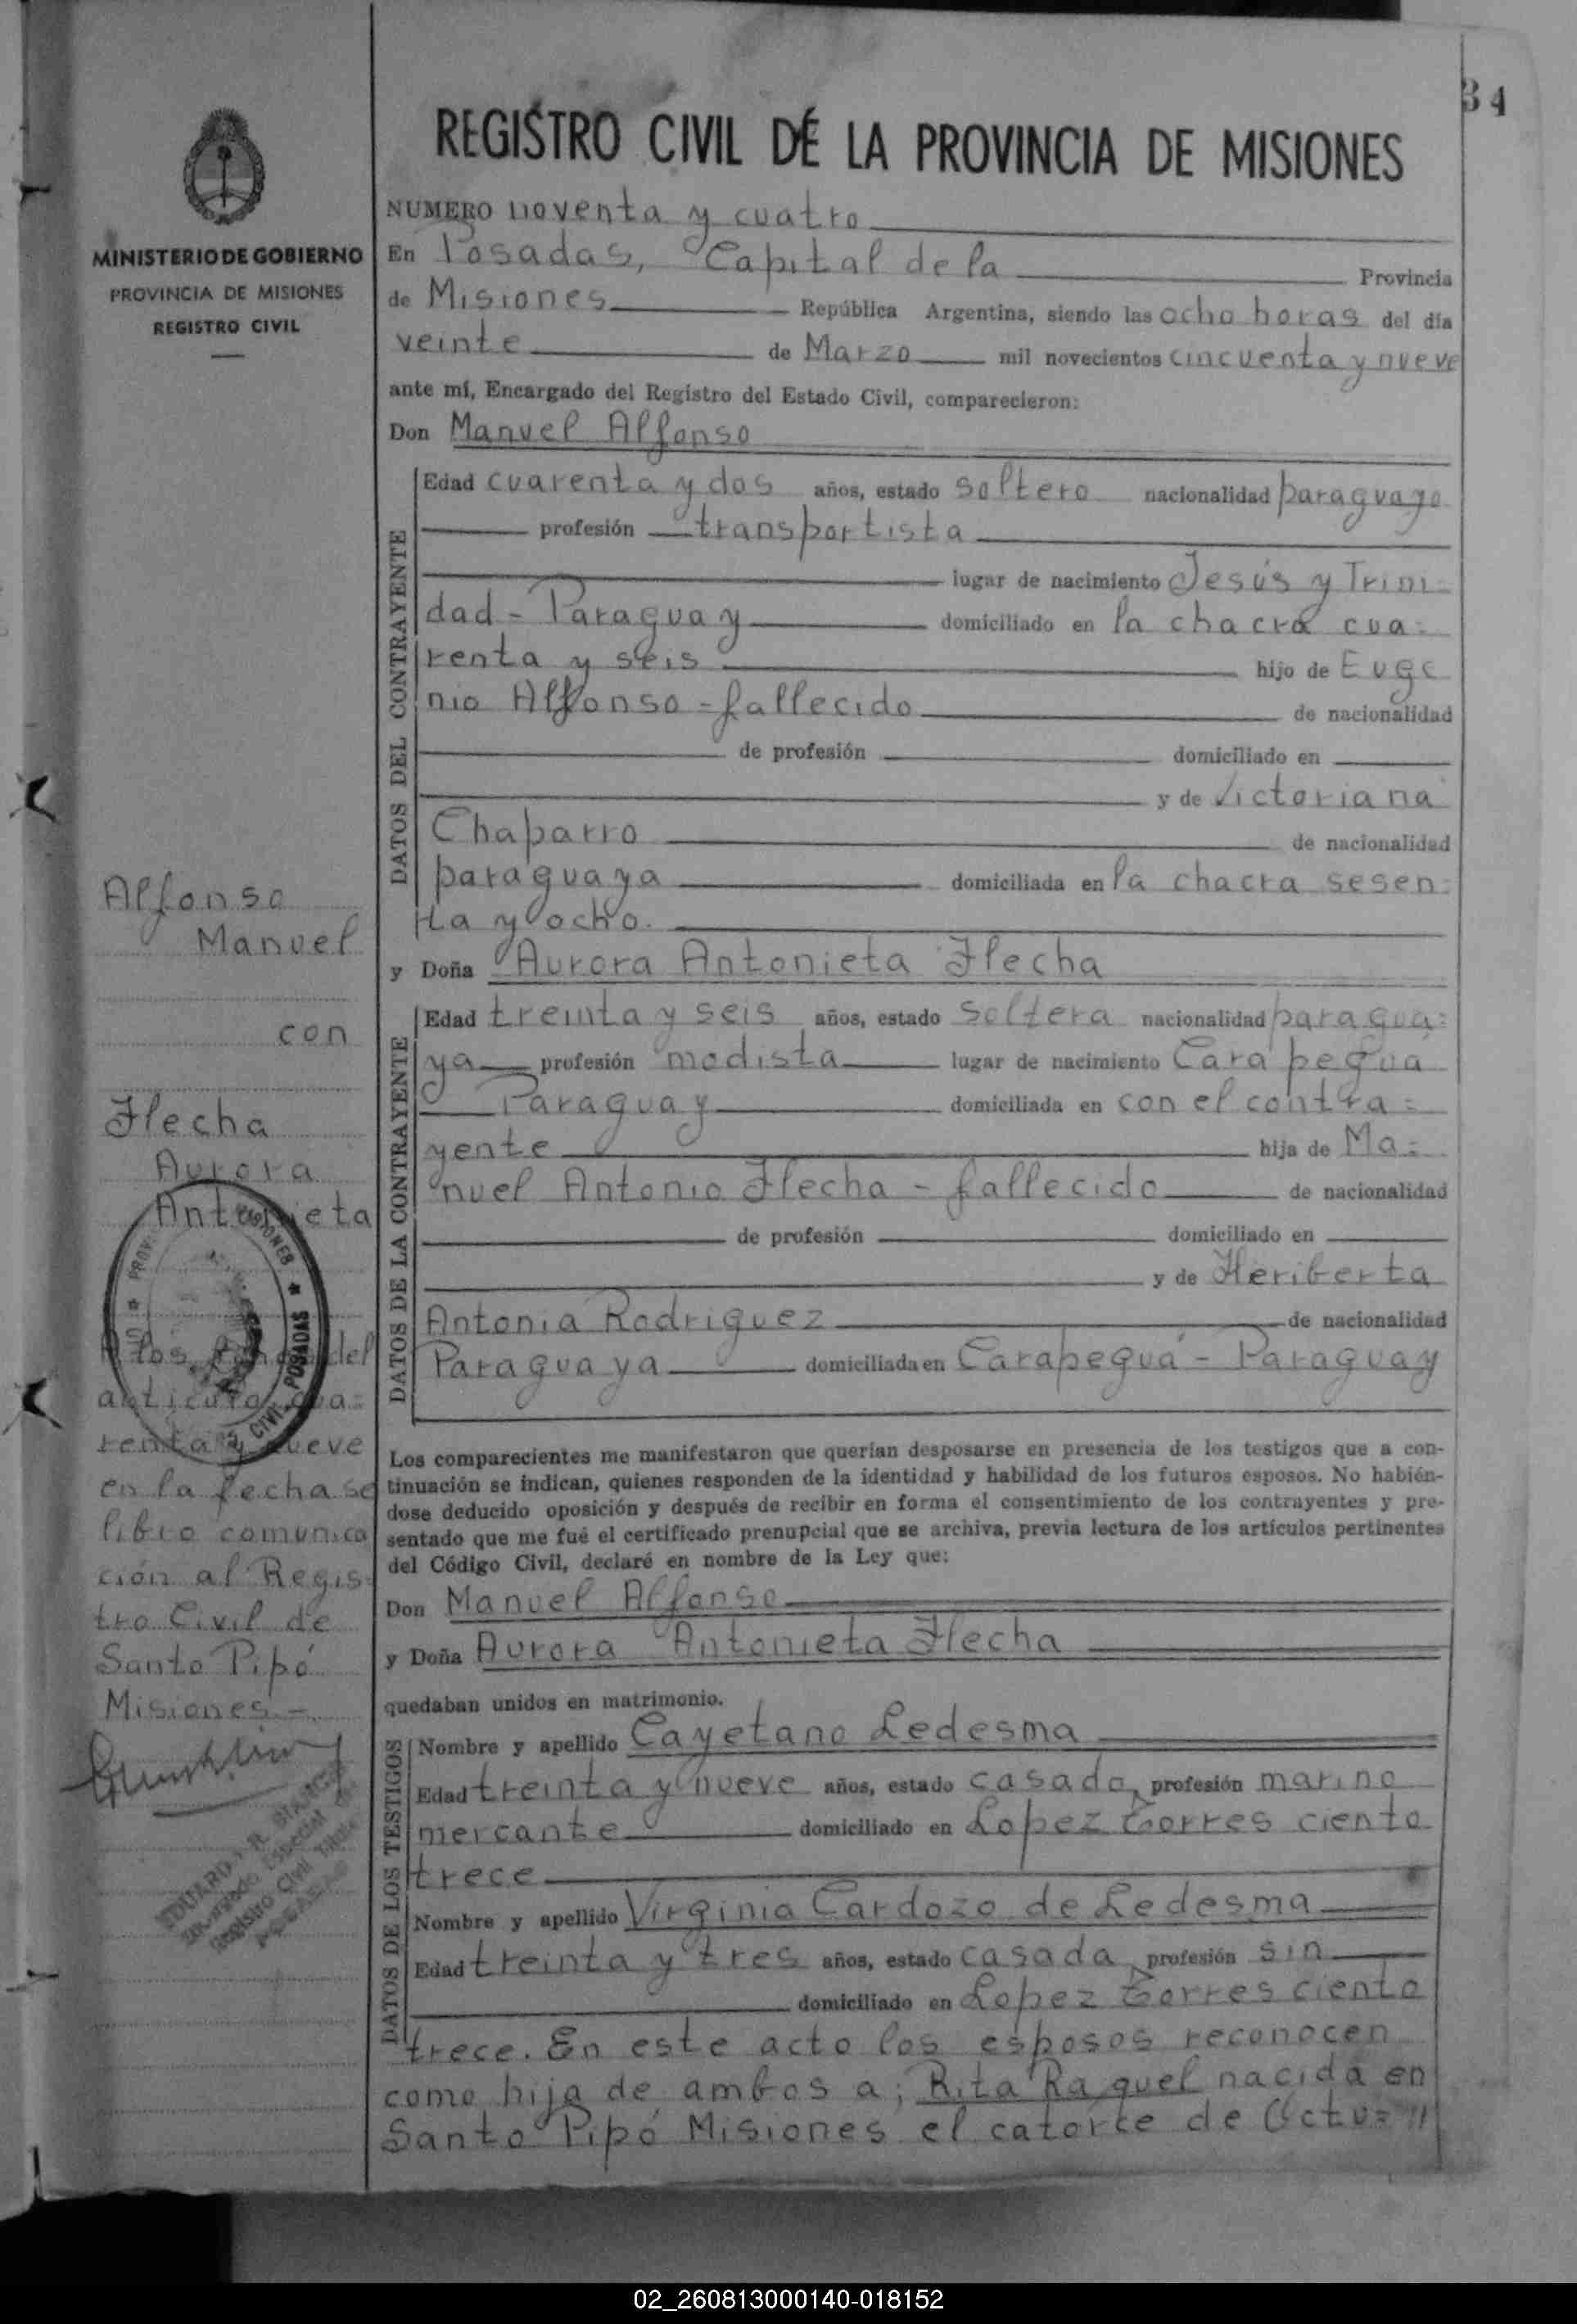 34
REGISTRO CIVIL DE LA PROVINCIA DE MISIONES
MINISTERIO DE GOBIERNO
PROVINCIA DE MISIONES
REGISTRO CIVIL
NUMERO noventa y cuatro
En Posadas, Capital de la Provincia
de Misiones República Argentina, siendo las ocho horas del día
veinte de Marzo mil novecientos cincuenta y nueve
ante mí, Encargado del Registro del Estado Civil, comparecieron:
Don Manuel Alfonso
DATOS DEL CONTRAYENTE
Edad cuarenta y dos años, estado soltero nacionalidad paraguayo
profesión transportista
lugar de nacimiento Jesús y Trini-
dad - Paraguay domiciliado en la chacra cua=
renta y seis hijo de Euge
nio Alfonso - fallecido de nacionalidad
de profesión domiciliado en
y de Victoriana
Chaparro de nacionalidad
paraguaya domiciliada en la chacra sesen=
ta y ocho.
y Doña Aurora Antonieta Flecha
DATOS DE LA CONTRAYENTE
Edad treinta y seis años, estado soltera nacionalidad paragua=
ya profesión modista lugar de nacimiento Carapeguá
Paraguay domiciliada en con el contra=
yente hija de Ma=
nuel Antonio Flecha - fallecido de nacionalidad
de profesión domiciliado en
y de Heriberta
Antonia Rodriguez de nacionalidad
Paraguaya domiciliada en Carapeguá - Paraguay
Los comparecientes me manifestaron que querían desposarse en presencia de los testigos que a con-
tinuación se indican, quienes responden de la identidad y habilidad de los futuros esposos. No habién-
dose deducido oposición y después de recibir en forma el consentimiento de los contrayentes y pre-
sentado que me fué el certificado prenupcial que se archiva, previa lectura de los artículos pertinentes
del Código Civil, declaré en nombre de la Ley que:
Don Manuel Alfonso
y Doña Aurora Antonieta Flecha
quedaban unidos en matrimonio.
DATOS DE LOS TESTIGOS
Nombre y apellido Cayetano Ledesma
Edad treinta y nueve años, estado casado, profesión marino
mercante domiciliado en Lopez Torres ciento
trece
Nombre y apellido Virginia Cardozo de Ledesma
Edad treinta y tres años, estado casada, profesión sin
domiciliado en Lopez Torres ciento
trece. En este acto los esposos reconocen
como hija de ambos a; Rita Raquel nacida en
Santo Pipó Misiones el catorce de Octu=
Alfonso
Manuel
con
Flecha
Aurora
Antonieta
PROV. MISIONES
CIVIL POSADAS
A los del
articulo cua=
renta y nueve
en la fecha se
libró comunica
ción al Regis
tro Civil de
Santo Pipó
Misiones -
EDUARDO R.
Encargado Especial
Registro Civil
POSADAS
02_260813000140-018152